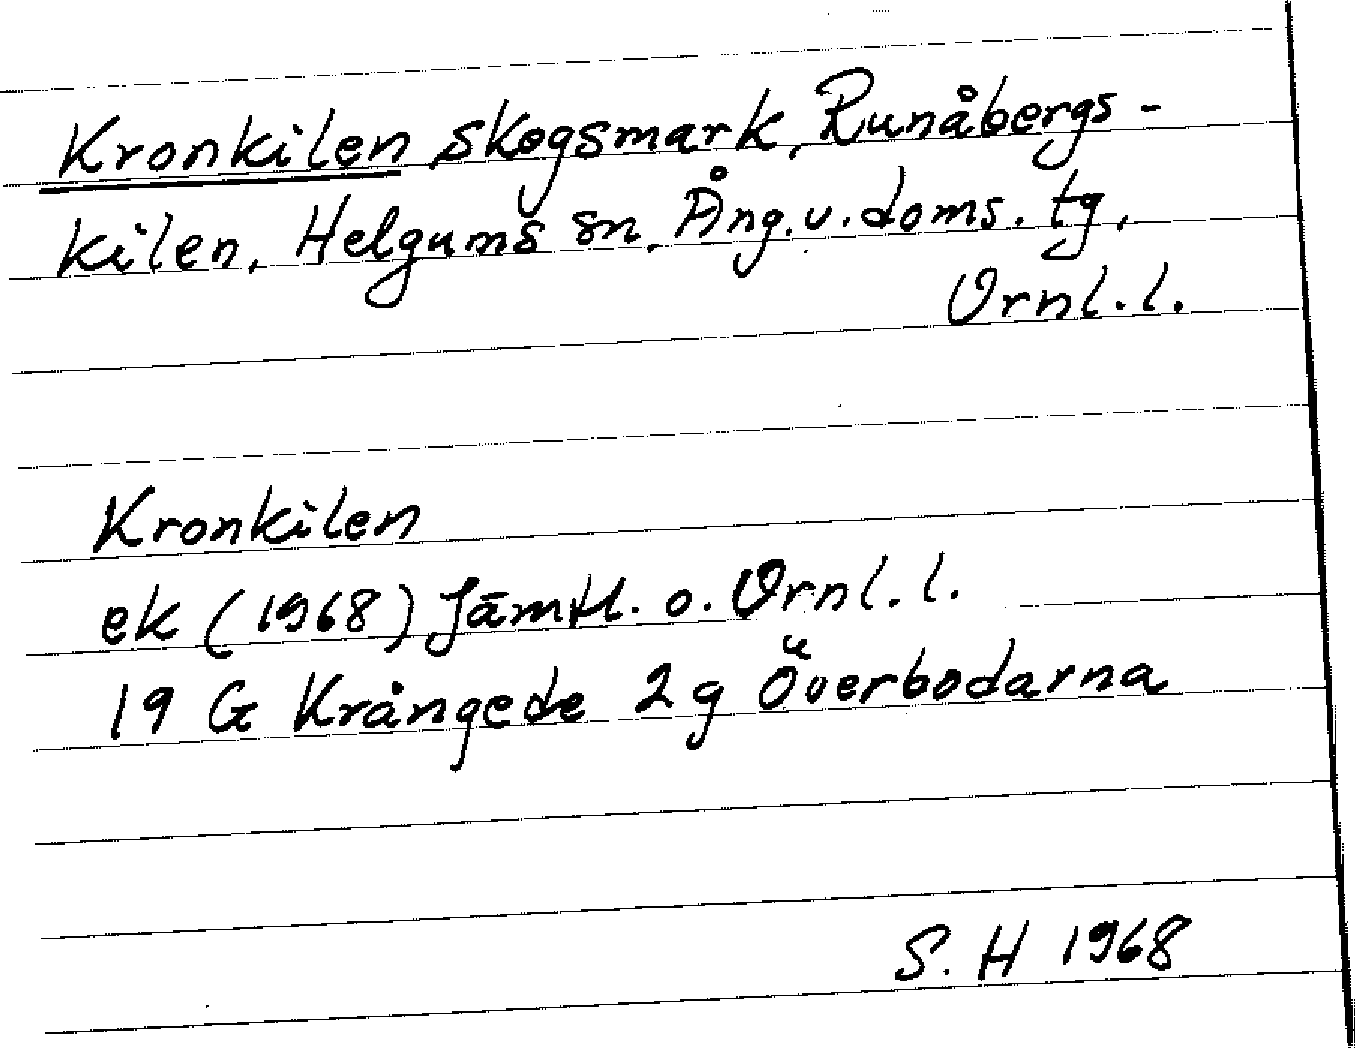 Kronkilen skogsmark, Runåbergs-
kilen, Helgums sn, Ång.v.doms. tg,
Vrnl.l.
Kronkilen
ek (1968) Jämtl. o. Vrnl.l.
19 G Krångede 2g Överbodarna
S. H 1968